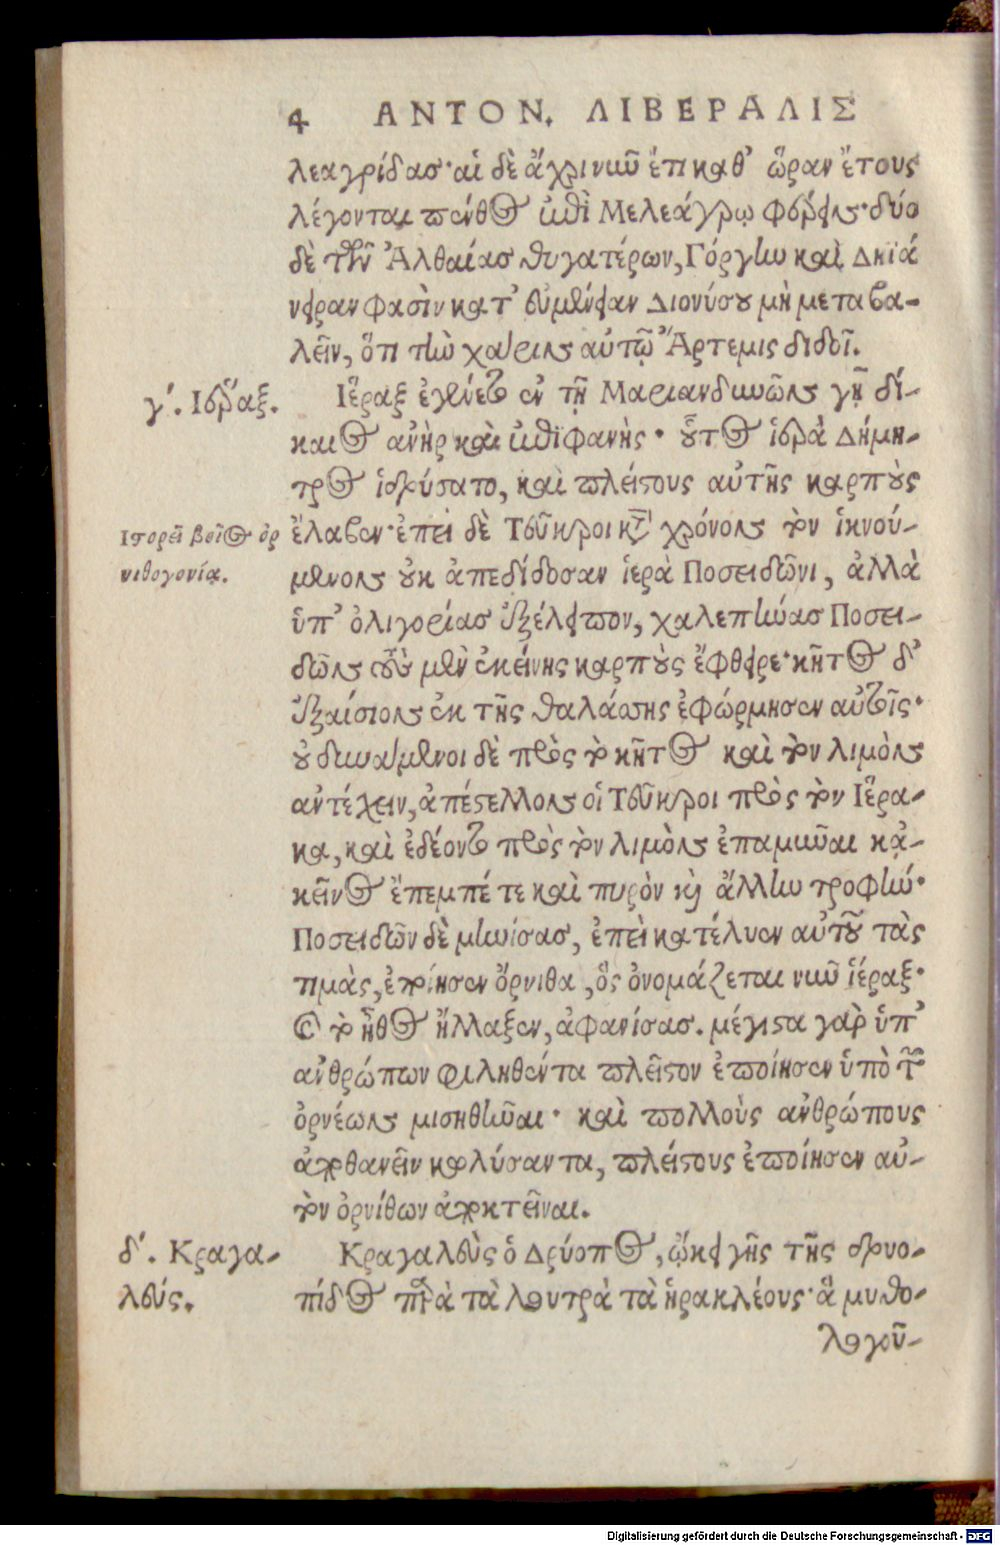 4 ΑΝΤΟΝ. ΛΙΒΕΡΑΛΙΣ
λεαγρίδας· αἱ δὲ ἄχρι νῦν ἔτι καθ' ὥραν ἔτους
λέγονται πένθος ἐπὶ Μελεάγρῳ φέρειν· δύο
δὲ τῶν Ἀλθαίας θυγατέρων, Γόργην καὶ Δηϊά
νειραν φασὶν κατ' εὐμένειαν Διονύσου μὴ μεταβα-
λεῖν, ὅτι τὴν χάριν αὐτῷ Ἄρτεμις διδοῖ.
γ'. Ιέραξ.
Ἱέραξ ἐγένετο ἐν τῇ Μαριανδυνῶν γῇ δί-
καιος ἀνὴρ καὶ ἐπιφανής· οὗτος ἱερὰ Δήμη-
τρος ἱδρύσατο, καὶ πλείστους αὐτῆς καρποὺς
Ιστορεῖ βοῖος ὀρ
νιθογονίᾳ.
ἔλαβεν· ἐπεὶ δὲ Τεῦκροι κατὰ χρόνον τὸν ἱκνού-
μενον οὐκ ἀπεδίδοσαν ἱερὰ Ποσειδῶνι, ἀλλὰ
ὑπ' ὀλιγορίας ἐξέλειπον, χαλεπήνας Ποσει-
δῶν τοὺς μὲν ἐκείνης καρποὺς ἔφθειρε· κῆτος δ'
ἐξαίσιον ἐκ τῆς θαλάσσης ἐφώρμησεν αὐτοῖς·
οὐ δυνάμενοι δὲ πρὸς τὸ κῆτος καὶ τὸν λιμὸν
ἀντέχειν, ἀπέστελλον οἱ Τεῦκροι πρὸς τὸν Ἱέρα-
κα, καὶ ἐδέοντο πρὸς τὸν λιμὸν ἐπαμῦναι κἀ-
κεῖνος ἔπεμπέ τε καὶ πυρὸν καὶ ἄλλην τροφήν·
Ποσειδῶν δὲ μηνίσας, ἐπεὶ κατέλυεν αὐτοῦ τὰς
τιμὰς, ἐποίησεν ὄρνιθα, ὃς ὀνομάζεται νῦν ἱέραξ·
καὶ τὸ ἦθος ἤλλαξεν, ἀφανίσας. μέγιστα γὰρ ὑπ'
ἀνθρώπων φιληθέντα πλεῖστον ἐποίησεν ὑπὸ τῶν
ὀρνέων μισηθῆναι· καὶ πολλοὺς ἀνθρώπους
ἀποθανεῖν κωλύσαντα, πλείστους ἐποίησεν αὐ-
τὸν ὀρνίθων ἀποκτεῖναι.
δ'. Κραγα-
λεύς.
Κραγαλεὺς ὁ Δρύοπος, ᾤκει γῆς τῆς δρυο-
πίδος παρὰ τὰ λουτρὰ τὰ ἡρακλέους· ἃ μυθο-
λογοῦ-
Digitalisierung gefördert durch die Deutsche Forschungsgemeinschaft - DFG